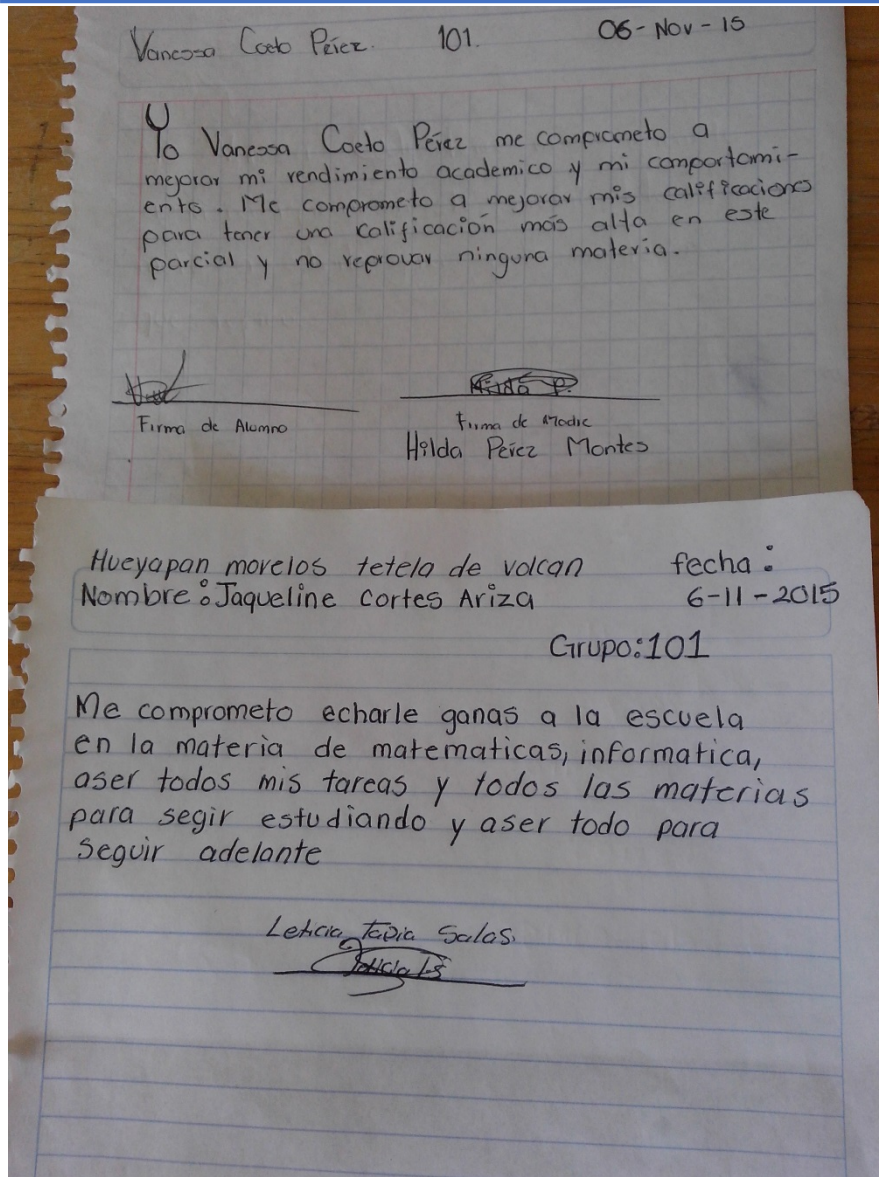 Vanessa Coeto Pérez. 101. 06-Nov-15
Yo Vanessa Coeto Pérez me comprometo a
mejorar mi rendimiento academico y mi comportami-
ento. Me comprometo a mejorar mis calificaciones
para tener una calificación más alta en este
parcial y no reprovar ninguna materia.
Hilda P.
Firma de Alumno Firma de Madre
Hilda Pérez Montes
Hueyapan morelos tetela de volcan fecha:
Nombre: Jaqueline cortes Ariza 6-11-2015
Grupo:101
Me comprometo echarle ganas a la escuela
en la materia de matematicas, informatica,
aser todos mis tareas y todos las materias
para segir estudiando y aser todo para
seguir adelante
Leticia Tapia Salas.